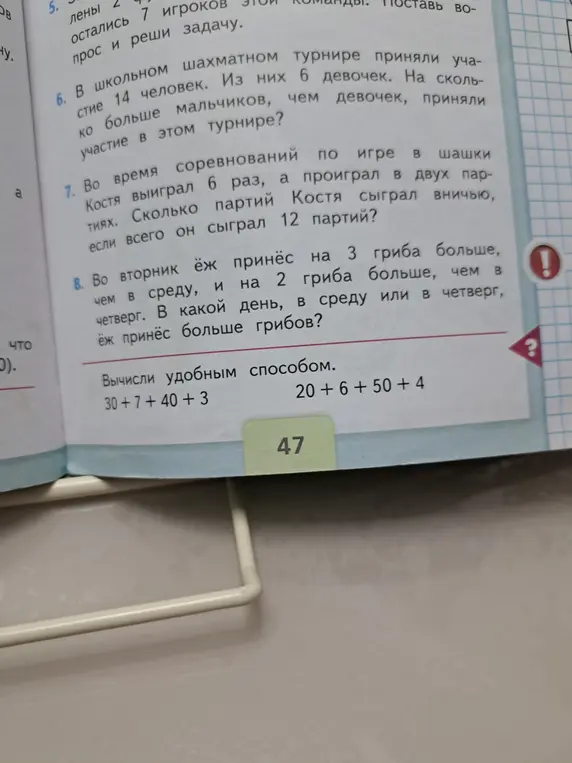 5.
лены 2
остались 7 игроков этой команды. Поставь во-
прос и реши задачу.
6. В школьном шахматном турнире приняли уча-
стие 14 человек. Из них 6 девочек. На сколь-
ко больше мальчиков, чем девочек, приняли
участие в этом турнире?
7. Во время соревнований по игре в шашки
Костя выиграл 6 раз, а проиграл в двух пар-
тиях. Сколько партий Костя сыграл вничью,
если всего он сыграл 12 партий?
8. Во вторник ёж принёс на 3 гриба больше,
чем в среду, и на 2 гриба больше, чем в
четверг. В какой день, в среду или в четверг,
ёж принёс больше грибов?
!
?
а
что
0).
Вычисли удобным способом.
30 + 7 + 40 + 3 20 + 6 + 50 + 4
47